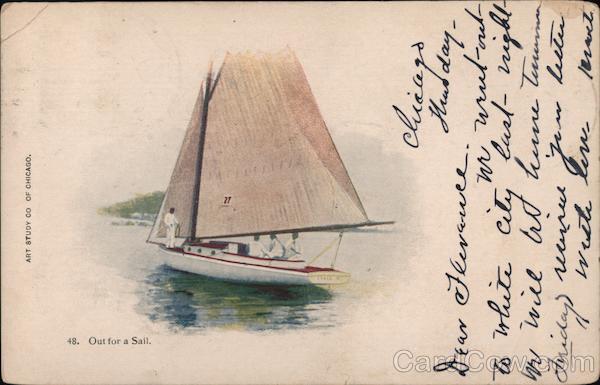 Chicago
Thursday-
Dear Florence.
We went out-
to white city last- night
We will be home tomorrow
Friday received your letter
with love
ART STUDY CO OF CHICAGO.
27
48. Out for a Sail.
CardCow.com